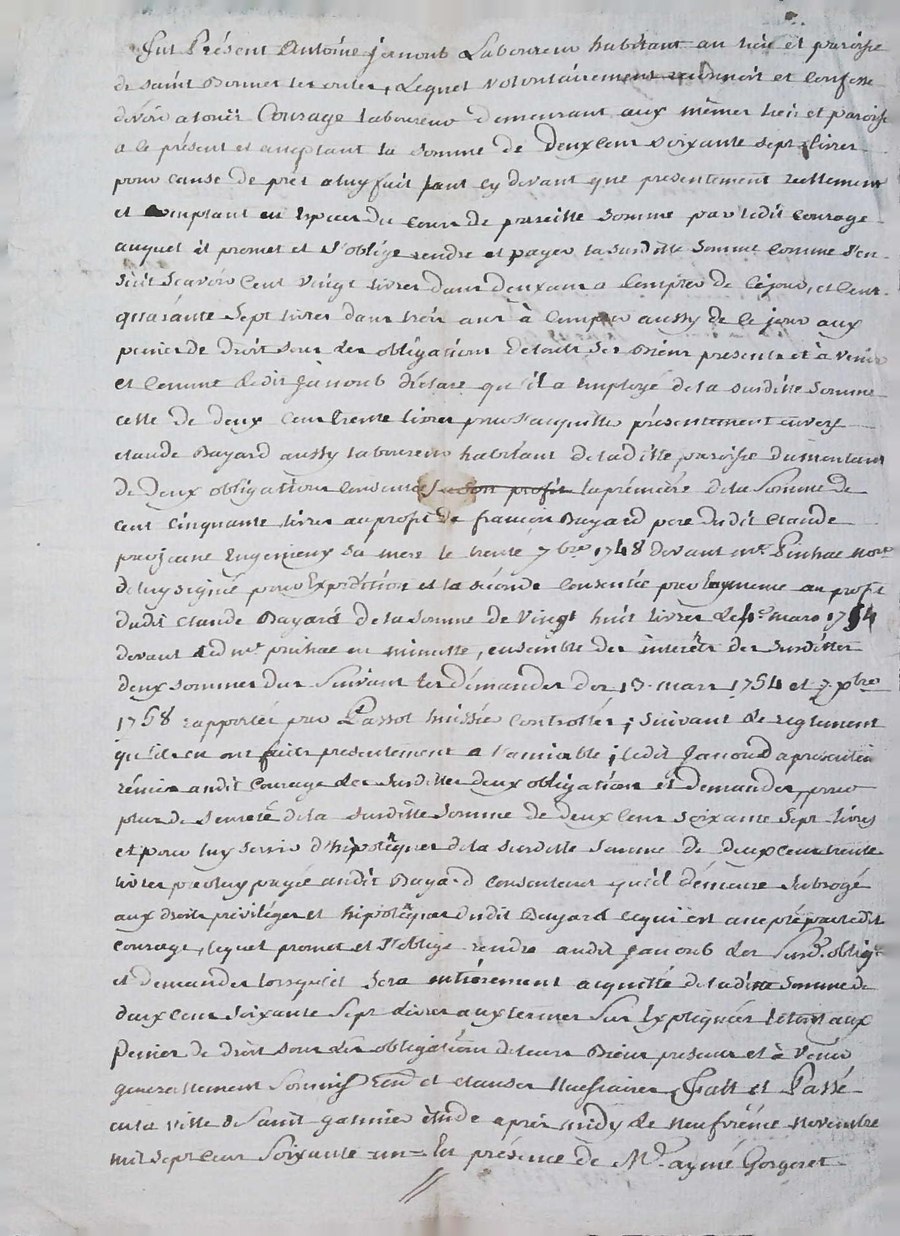 Fut Présent Antoine janoub Laboureur habitant au lieu et paroisse
de saint Bonnet les oules, Lequel volontairement reconnoit et confesse
devoir a Courage laboureur demeurant aux mêmes lieu et paroisse
a ce présent et acceptant la somme de deux cens soixante sept livres
pour cause de prêt a luy fait tant cy devant que presentement reellement
et comptant en espèces du cours de pareille somme par ledit Courage
auquel il promet et s'oblige rendre et payer la susditte somme comme s'en-
suit scavoir cent vingt livres dans deux ans a compter de ce jour, et cent
quarante sept livres dans trois ans à compter aussy de ce jour aux
peines de droit sous les obligations de touts ses Biens presents et à venir
et comme ledit janoub déclare qu'il a employé de la susditte somme
celle de deux cens trente livres pour s'acquitter présentement envers
claude Bayard aussy laboureur habitant de laditte paroisse du montant
de deux obligations consenties a son profit la première de la somme de
cent cinquante livres au profit de francois Bayard pere dudit Claude
par jeane Engenieux sa mere le trente 7bre 1748 devant me. Pinhac nore
de luy signé pour Expedition et la séconde consentie par au profit
dudit Claude Bayard de la somme de vingt huit livres le mars 1754
devant led me. pinhac en minutte, ensemble des interêts des susdittes
deux sommes dus suivant les démandes des 13. mars 1754 et 7 xbre
1758 rapportées par Passot huissier controllés; suivant le reglement
qu'ils en ont faits presentement a l'amiable; ledit janoub a presentement
rémis audit Courage les susdittes deux obligations et demandes, pour
plus de seureté de la susditte somme de deux cens soixante sept livres
et pour luy servir d'hipotèques de la susditte somme de deux cens trente
livres par luy payée audit Bayard consentent qu'il démeure subrogé
aux droits privilèges et hipotèques dudit Bayard ce qui est accepté par ledit
courage, lequel promet et s'oblige rendre audit janoub les susd. obligons
et demandes lorsqu'il sera entièrement acquitté de ladite somme de
deux cens soixante sept livres aux termes sus expliqués le tout aux
peines de droit sous les obligations de leurs Biens presents et à venir
generallement soumis Renon et clauses necessaires, Fait et Passé
en la ville de Saint galmier étude après midy le neufvième novembre
mil sept cens soixante-un= En présence de Me. aymé Gorgeret